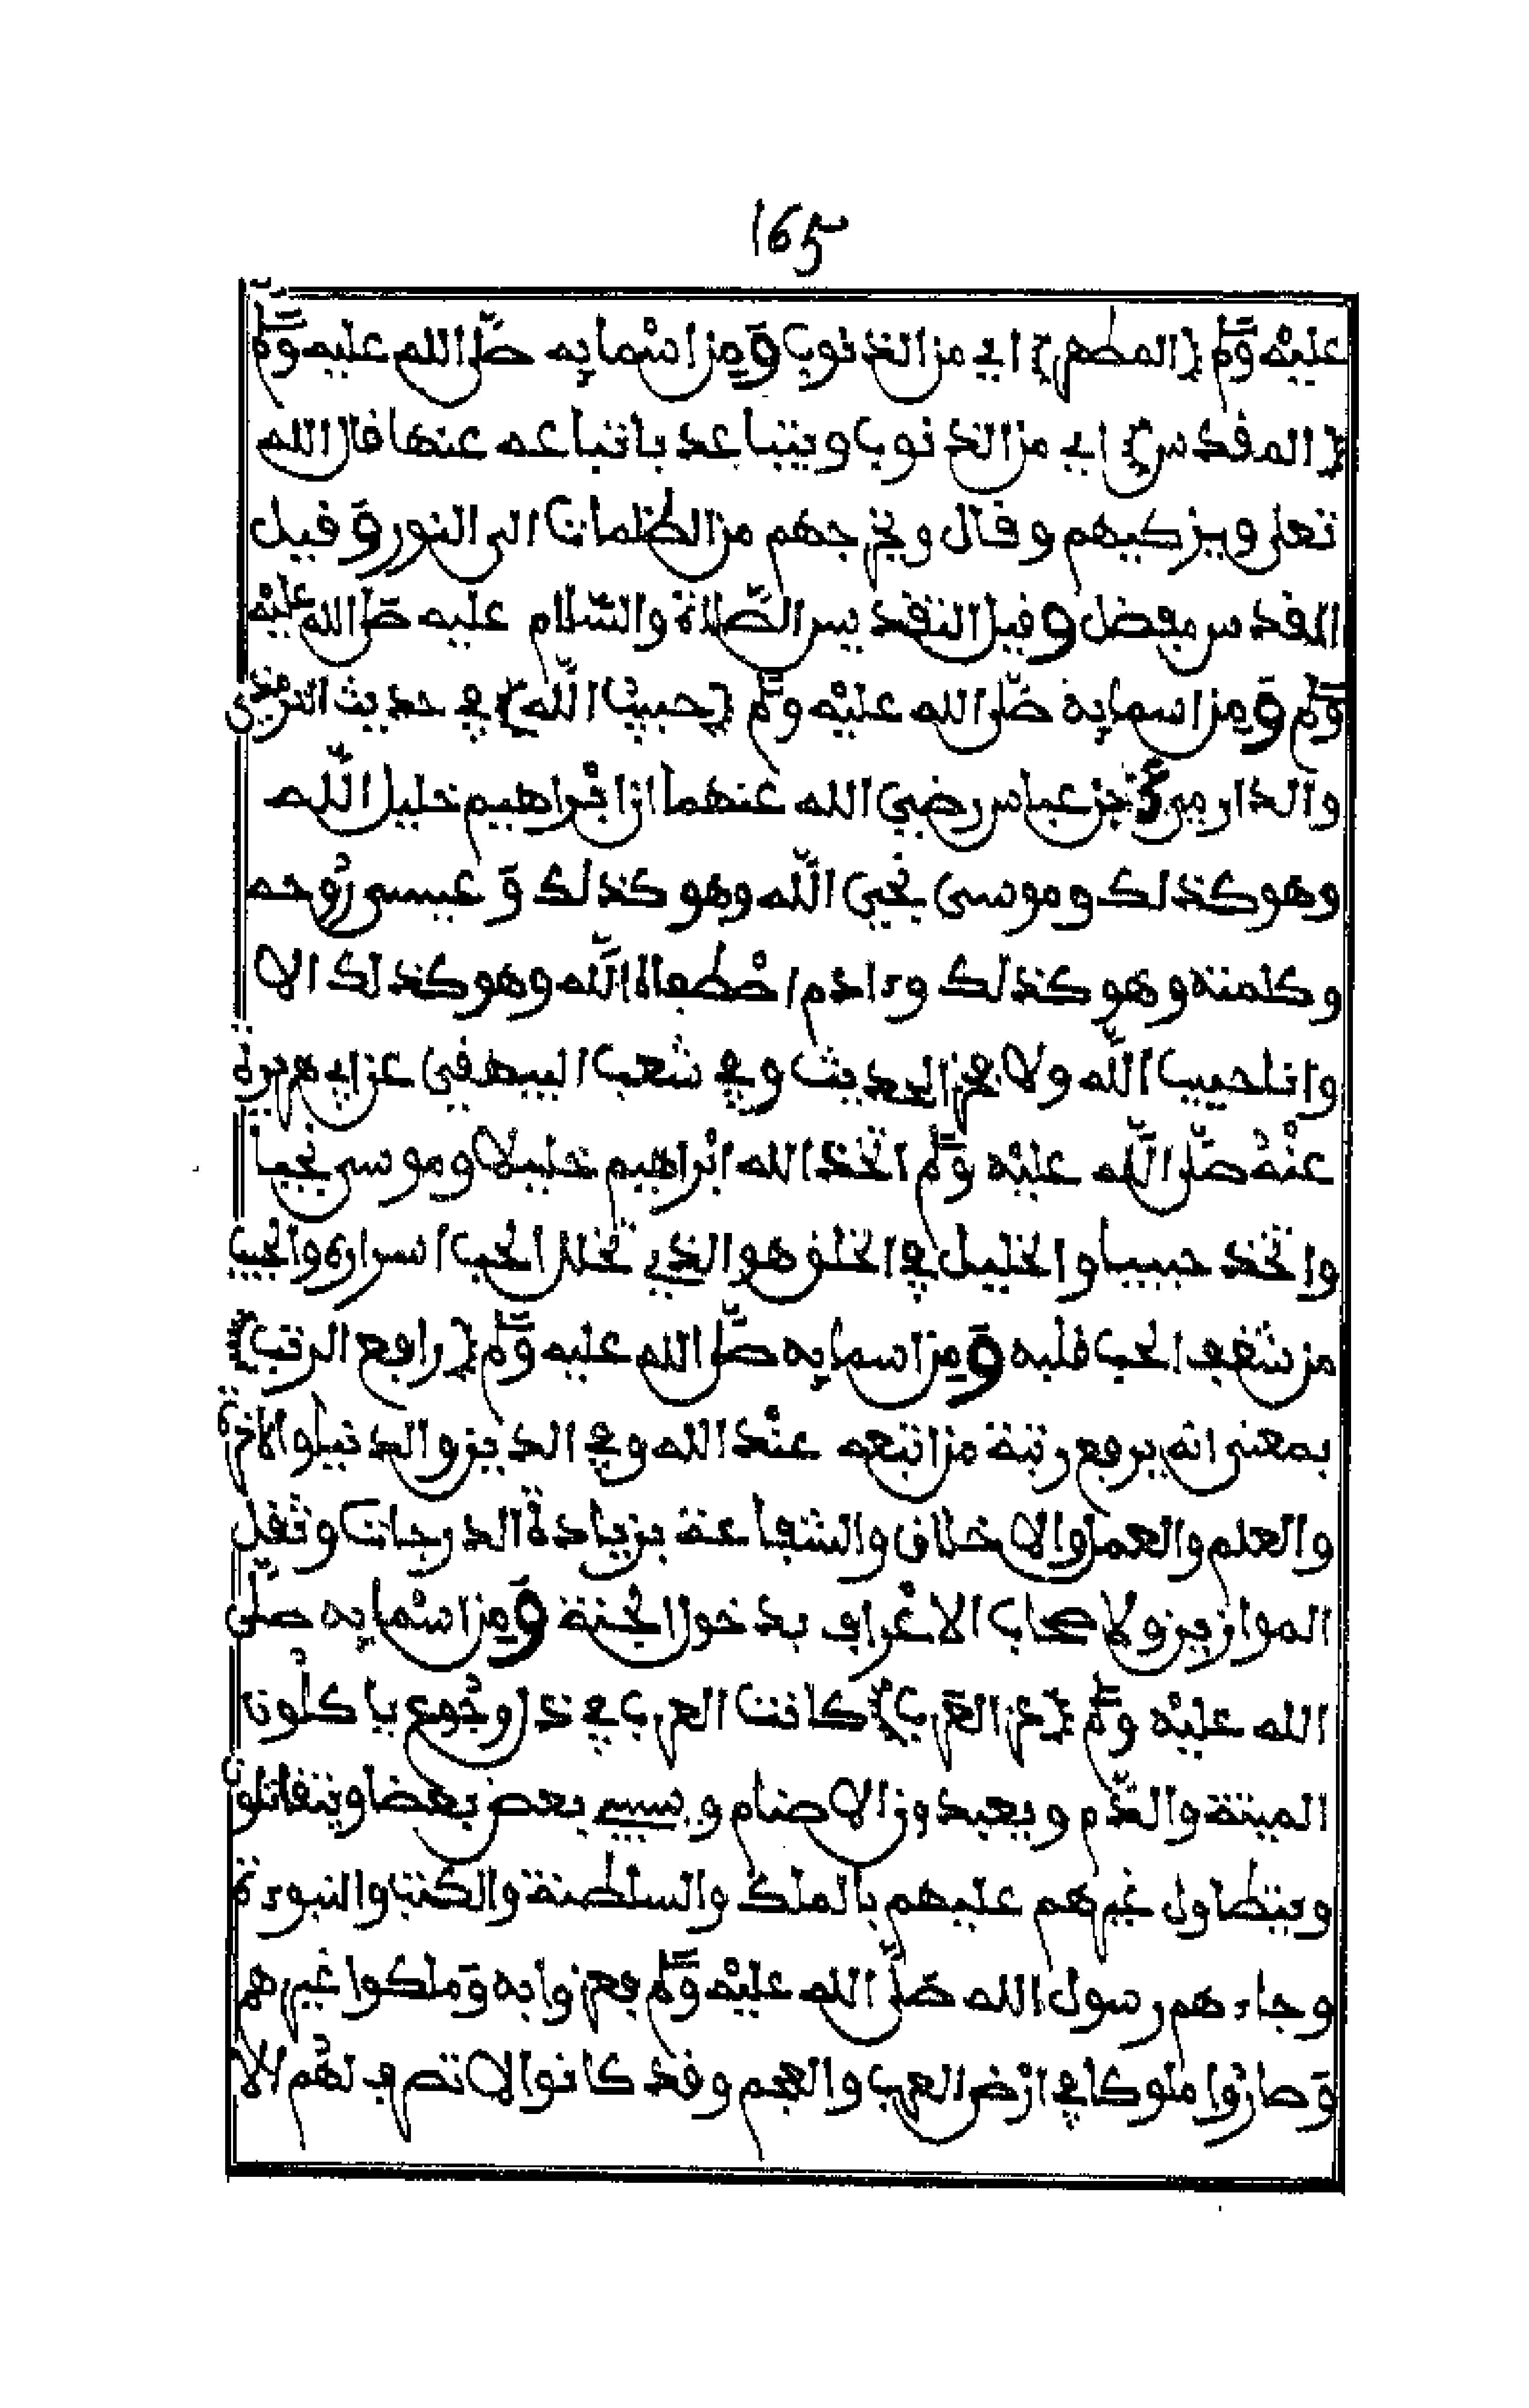 165
عليه وسلم {المطهر} اي من الذنوب ومن اسمايه صلى الله عليه وسلم
{المقدس} اي من الذنوب ويتباعد باتباعه عنها قال الله
تعلى ويزكيهم وقال ويخرجهم من الظلمات الى النور وقيل
المقدس مفضل وقيل التقديس الصلاة والسلام عليه صلى الله عليه
وسلم ومن اسمايه صلى الله عليه وسلم {حبيب الله} في حديث الترمذي
والدارمي عن ابن عباس رضي الله عنهما ان ابراهيم خليل الله
وهو كذلك وموسى نجي الله وهو كذلك وعيسى روحه
وكلمته وهو كذلك وءادم اصطفاه الله وهو كذلك الا
وانا حبيب الله ولا فخر الحديث وفي شعب البيهقي عن ابي هريرة
عنه صلى الله عليه وسلم اتخذ الله ابراهيم خليلا وموسى نجيا
واتخذ حبيبا والخليل في الخلق هو الذي تخلل الحب اسراره والحبيب
من شغف الحب قلبه ومن اسمايه صلى الله عليه وسلم {رافع الرتب}
بمعنى انه يرفع رتبة من اتبعه عند الله وفي الدين والدنيا والاخرة
والعلم والعمل والاخلاق والشفاعة بزيادة الدرجات وثقل
الموازين ولاصحاب الاعراف بدخول الجنة ومن اسمايه صلى
الله عليه وسلم {عز العرب} كانت العرب في ذل وجوع ياكلون
الميتة والدم ويعبدون الاصنام ويسبي بعض بعضا ويتقاتلون
ويتطاول غيرهم عليهم بالملك والسلطنة والكتب والنبوءة
وجاءهم رسول الله صلى الله عليه وسلم فعزوا به وملكوا غيرهم
وصاروا ملوكا في ارض العرب والعجم وقد كانوا لا تصرف لهم الا